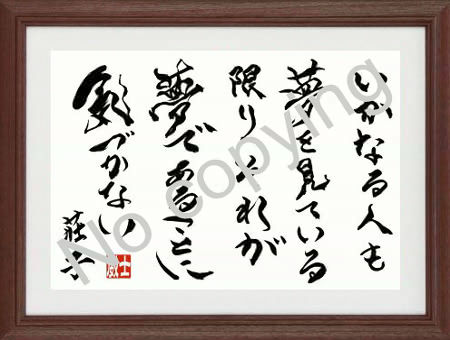 いかなる人も
夢を見ている
限りそれが
夢であることに
氣づかない
荘子
No copying